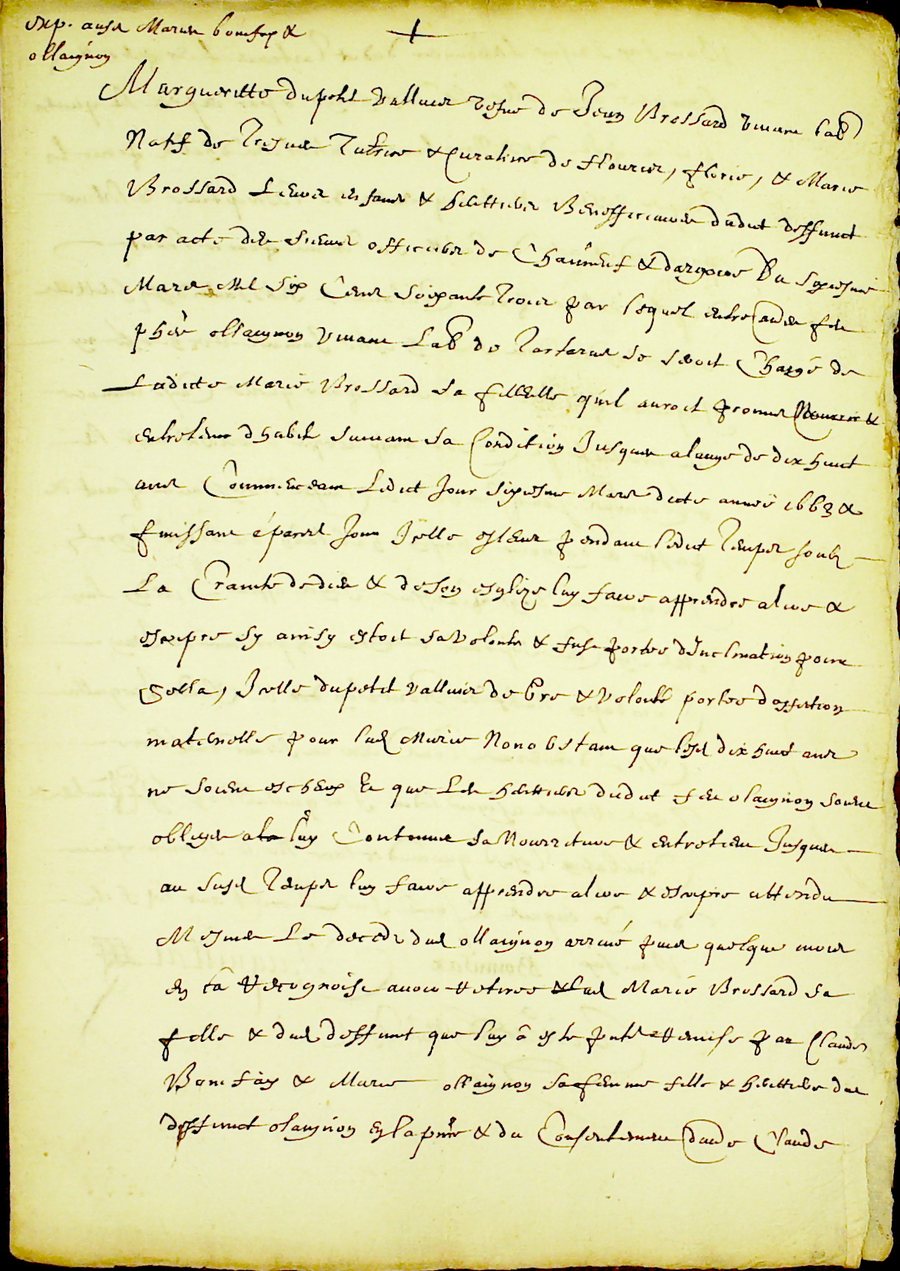 exp. ausd Marie bonifay &
ollaignon
Margueritte du petit vallier vefve de Jean Brossard vivant lab
Natif de tutrice & curatrice de flourie, florie, & Marie
Brossard leurs enfans & heritiers Beneficiaires dudit deffunct
par acte des sieurs officiers de & dargoire Du sixiesme
Mars Mil Six Cens Soixante trois par lequel entre autre feu
ollaignon vivant Lab de se seroit Chargé de
Ladicte Marie Brossard sa filleulle quil auroit promis Nourrir &
entretenir dhabit suivant sa Condition Jusques a laage de dix huict
ans Commenceant Ledict Jour sixiesme Mars dicte année 1663 &
finissant a pareil Jour Icelle eslever pendant ledict temps soubz
La Crainte de dieu & de son esglize luy faire apprendre a lire &
escripre sy ainsy estoit sa volonté & fust portée d'Inclination pour
Cella, Icelle du petit vallier de gre & volonté portée d'affection
maternelle pour lad Marie Nonobstant que lesd dix huict ans
ne soient escheux Et que Les heritiers dudit feu olaignon soient
obliges a la luy Continuer sa Nourriture & entretien Jusques
au susd temps luy faire apprendre a lire & escripre attendu
Mesmes Le deceds dud ollaignon arrivé puis quelque mois
en ça Recognoist avoir Retirée lad Marie Brossard sa
fille & dud deffunct que luy a esté pntt Remise par Claude
Bonifay & Marie ollaignon sa femme fille & heritiere dud
deffunct olaignon en la pnce & du Consentement dud Claude